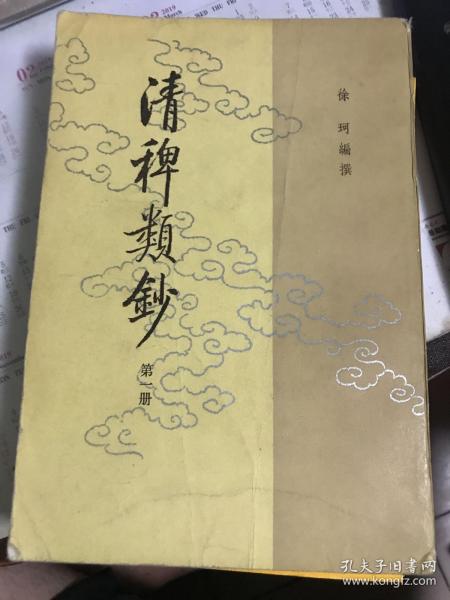 清稗類鈔
第一册
徐珂編撰
02
2019
March
2019
孔夫子旧书网
www.kongfz.com